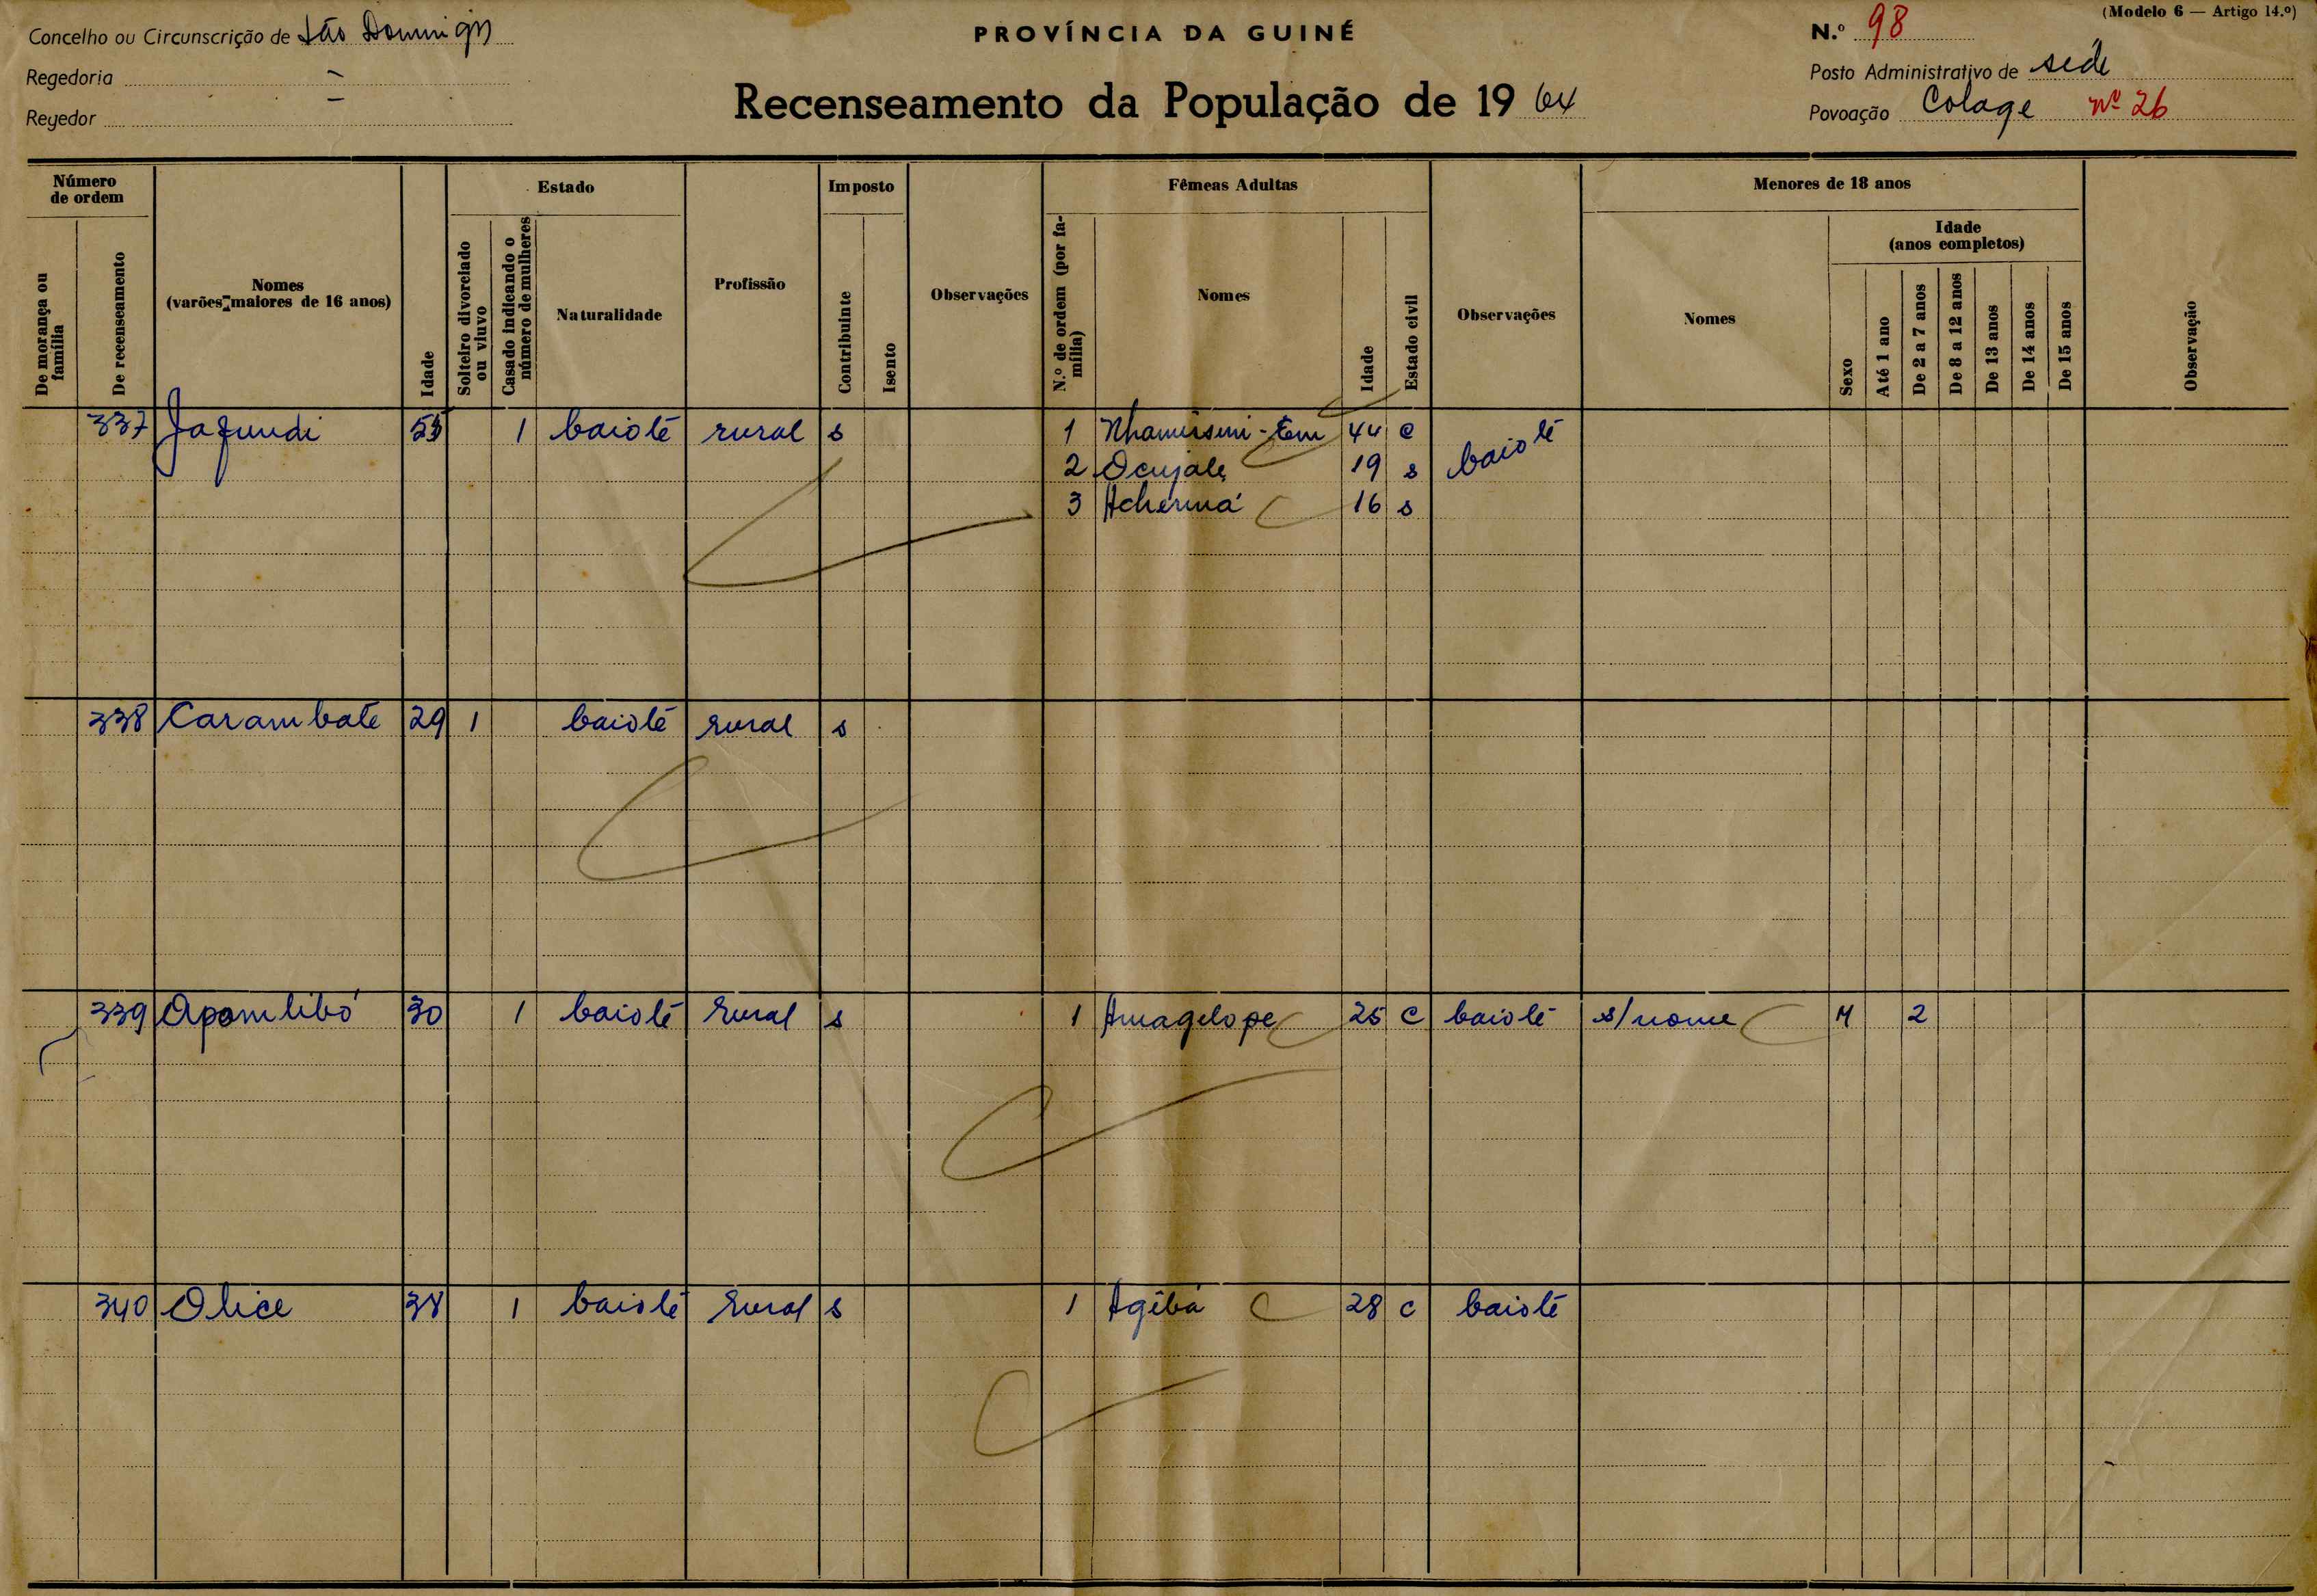 (Modelo 6 — Artigo 14.º)
Concelho ou Circunscrição de São Domingos
PROVÍNCIA DA GUINÉ
N.º 98
Regedoria —
Posto Administrativo de sede
Regedor —
Recenseamento da População de 1964
Povoação Colage nº 26
Número de ordem
Estado
Imposto
Fêmeas Adultas
Menores de 18 anos
De morança ou família
De recenseamento
Nomes (varões maiores de 16 anos)
Idade
Solteiro divorciado ou viuvo
Casado indicando o número de mulheres
Naturalidade
Profissão
Contribuinte
Isento
Observações
N.º de ordem (por família)
Nomes
Idade
Estado civil
Observações
Nomes
Sexo
Idade (anos completos)
Até 1 ano
De 2 a 7 anos
De 8 a 12 anos
De 13 anos
De 14 anos
De 15 anos
Observação
337 Jafundi 55 1 baiote rural s 1 44 c baiote
2 Ocujale 19 s
3 Acherma 16 s
338 Carambate 29 1 baiote rural s
339 Apomlibó 30 1 baiote rural s 1 Amagelope 25 c baiote s/nome M 2
340 Olice 38 1 baiote rural s 1 Agêbá 28 c baiote